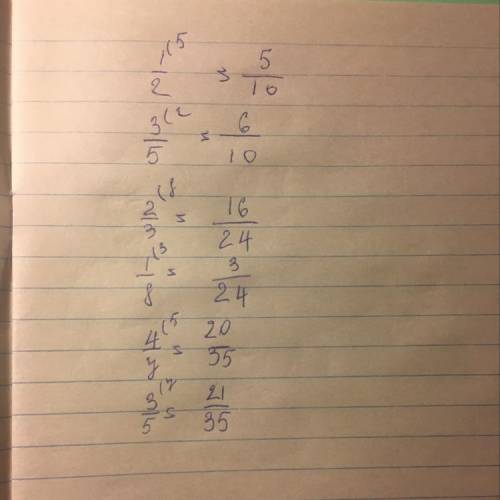 1/2 (5 = 5/10
3/5 (2 = 6/10
2/3 (8 = 16/24
1/8 (3 = 3/24
4/7 (5 = 20/35
3/5 (7 = 21/35